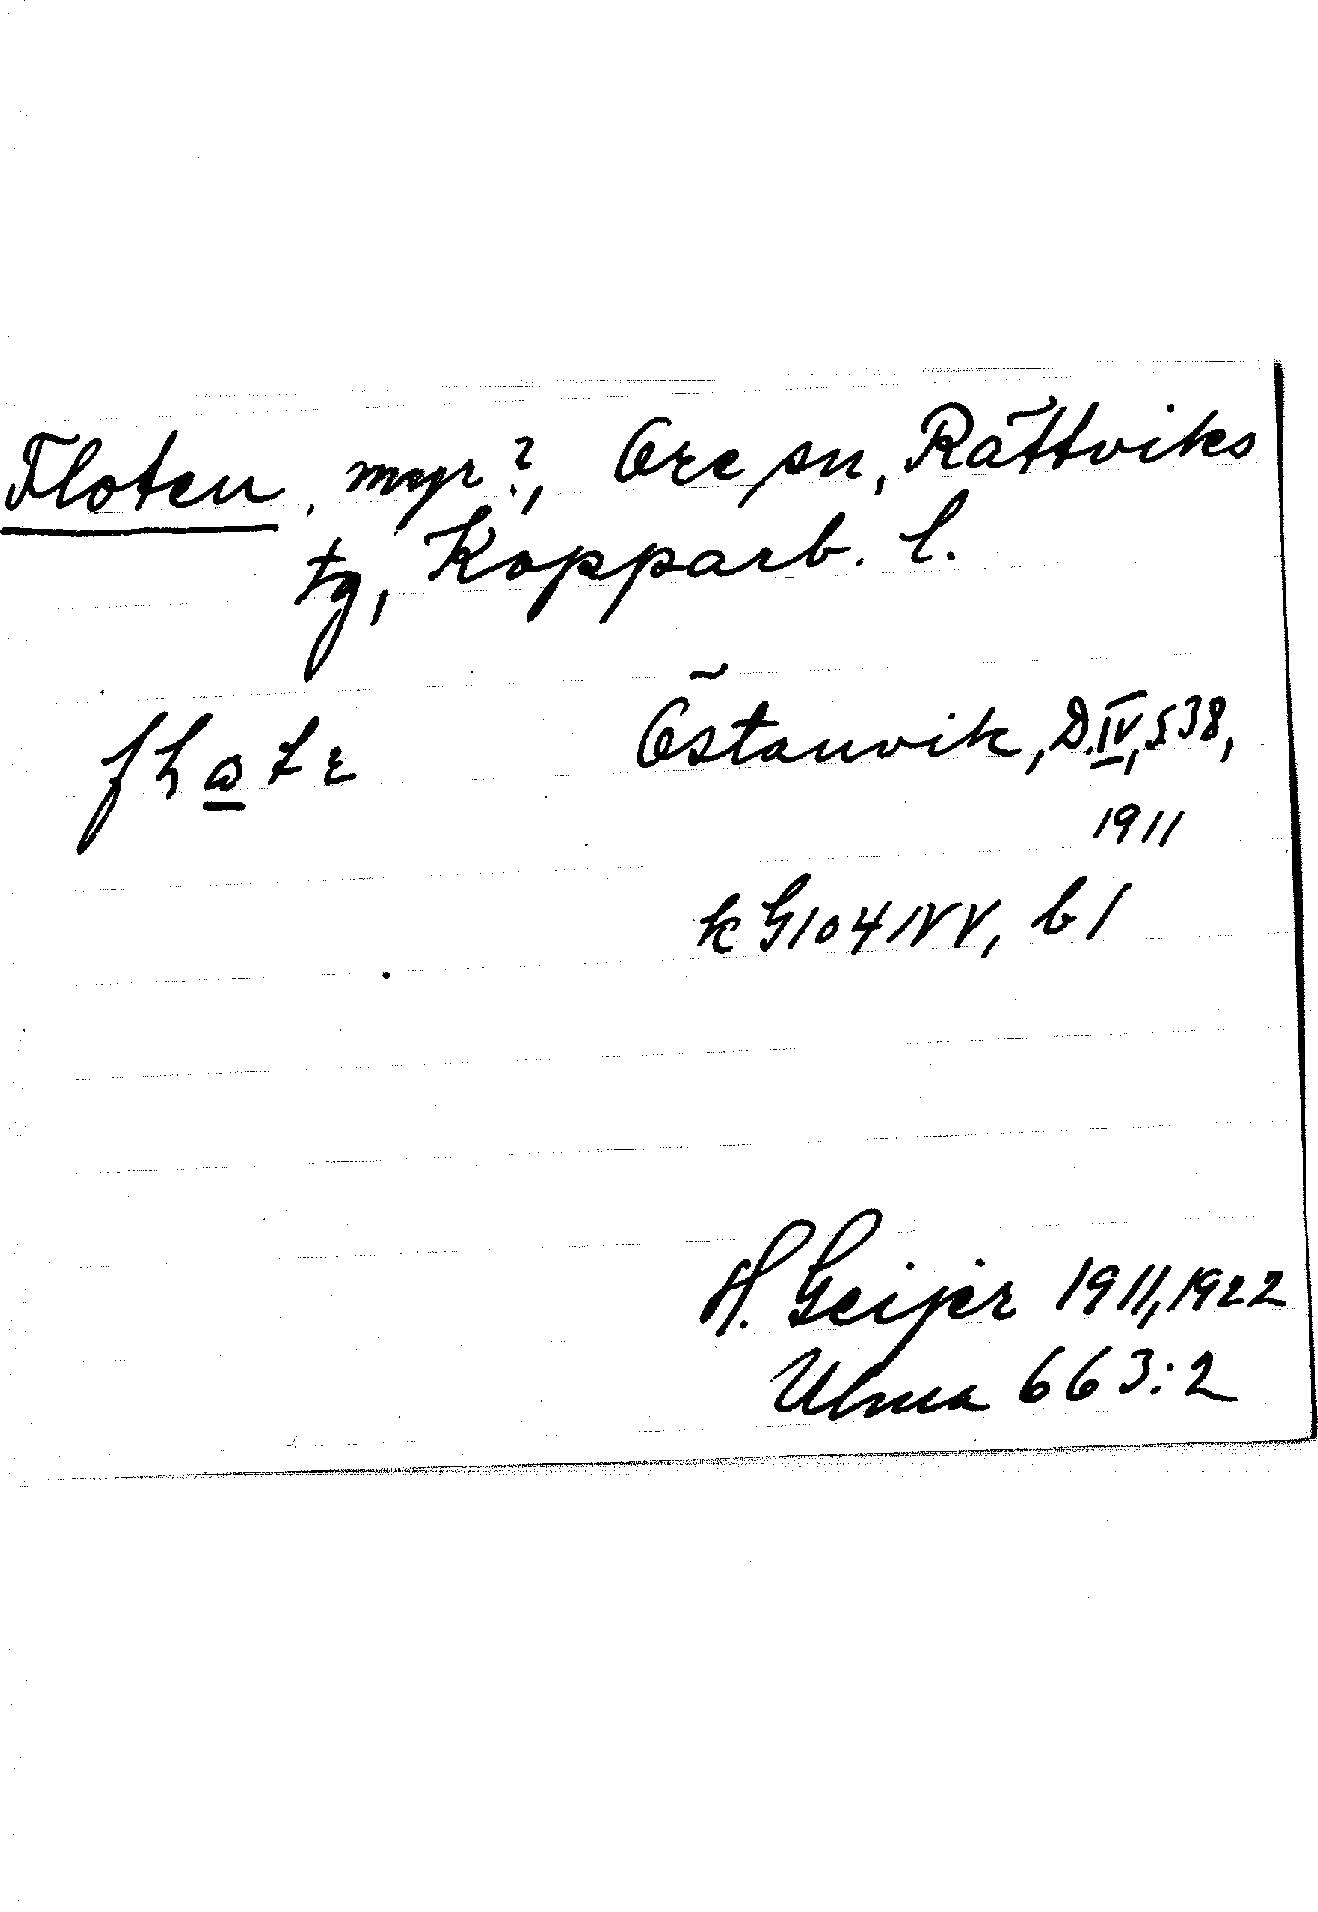 Floten, myr?, Ore sn, Rättviks
tg, Kopparb. l.
Östanvik, D. IV, S 38,
1911
k G 104 NV V, b 1
H. Geijer 1911, 1922
Ulma 663:2